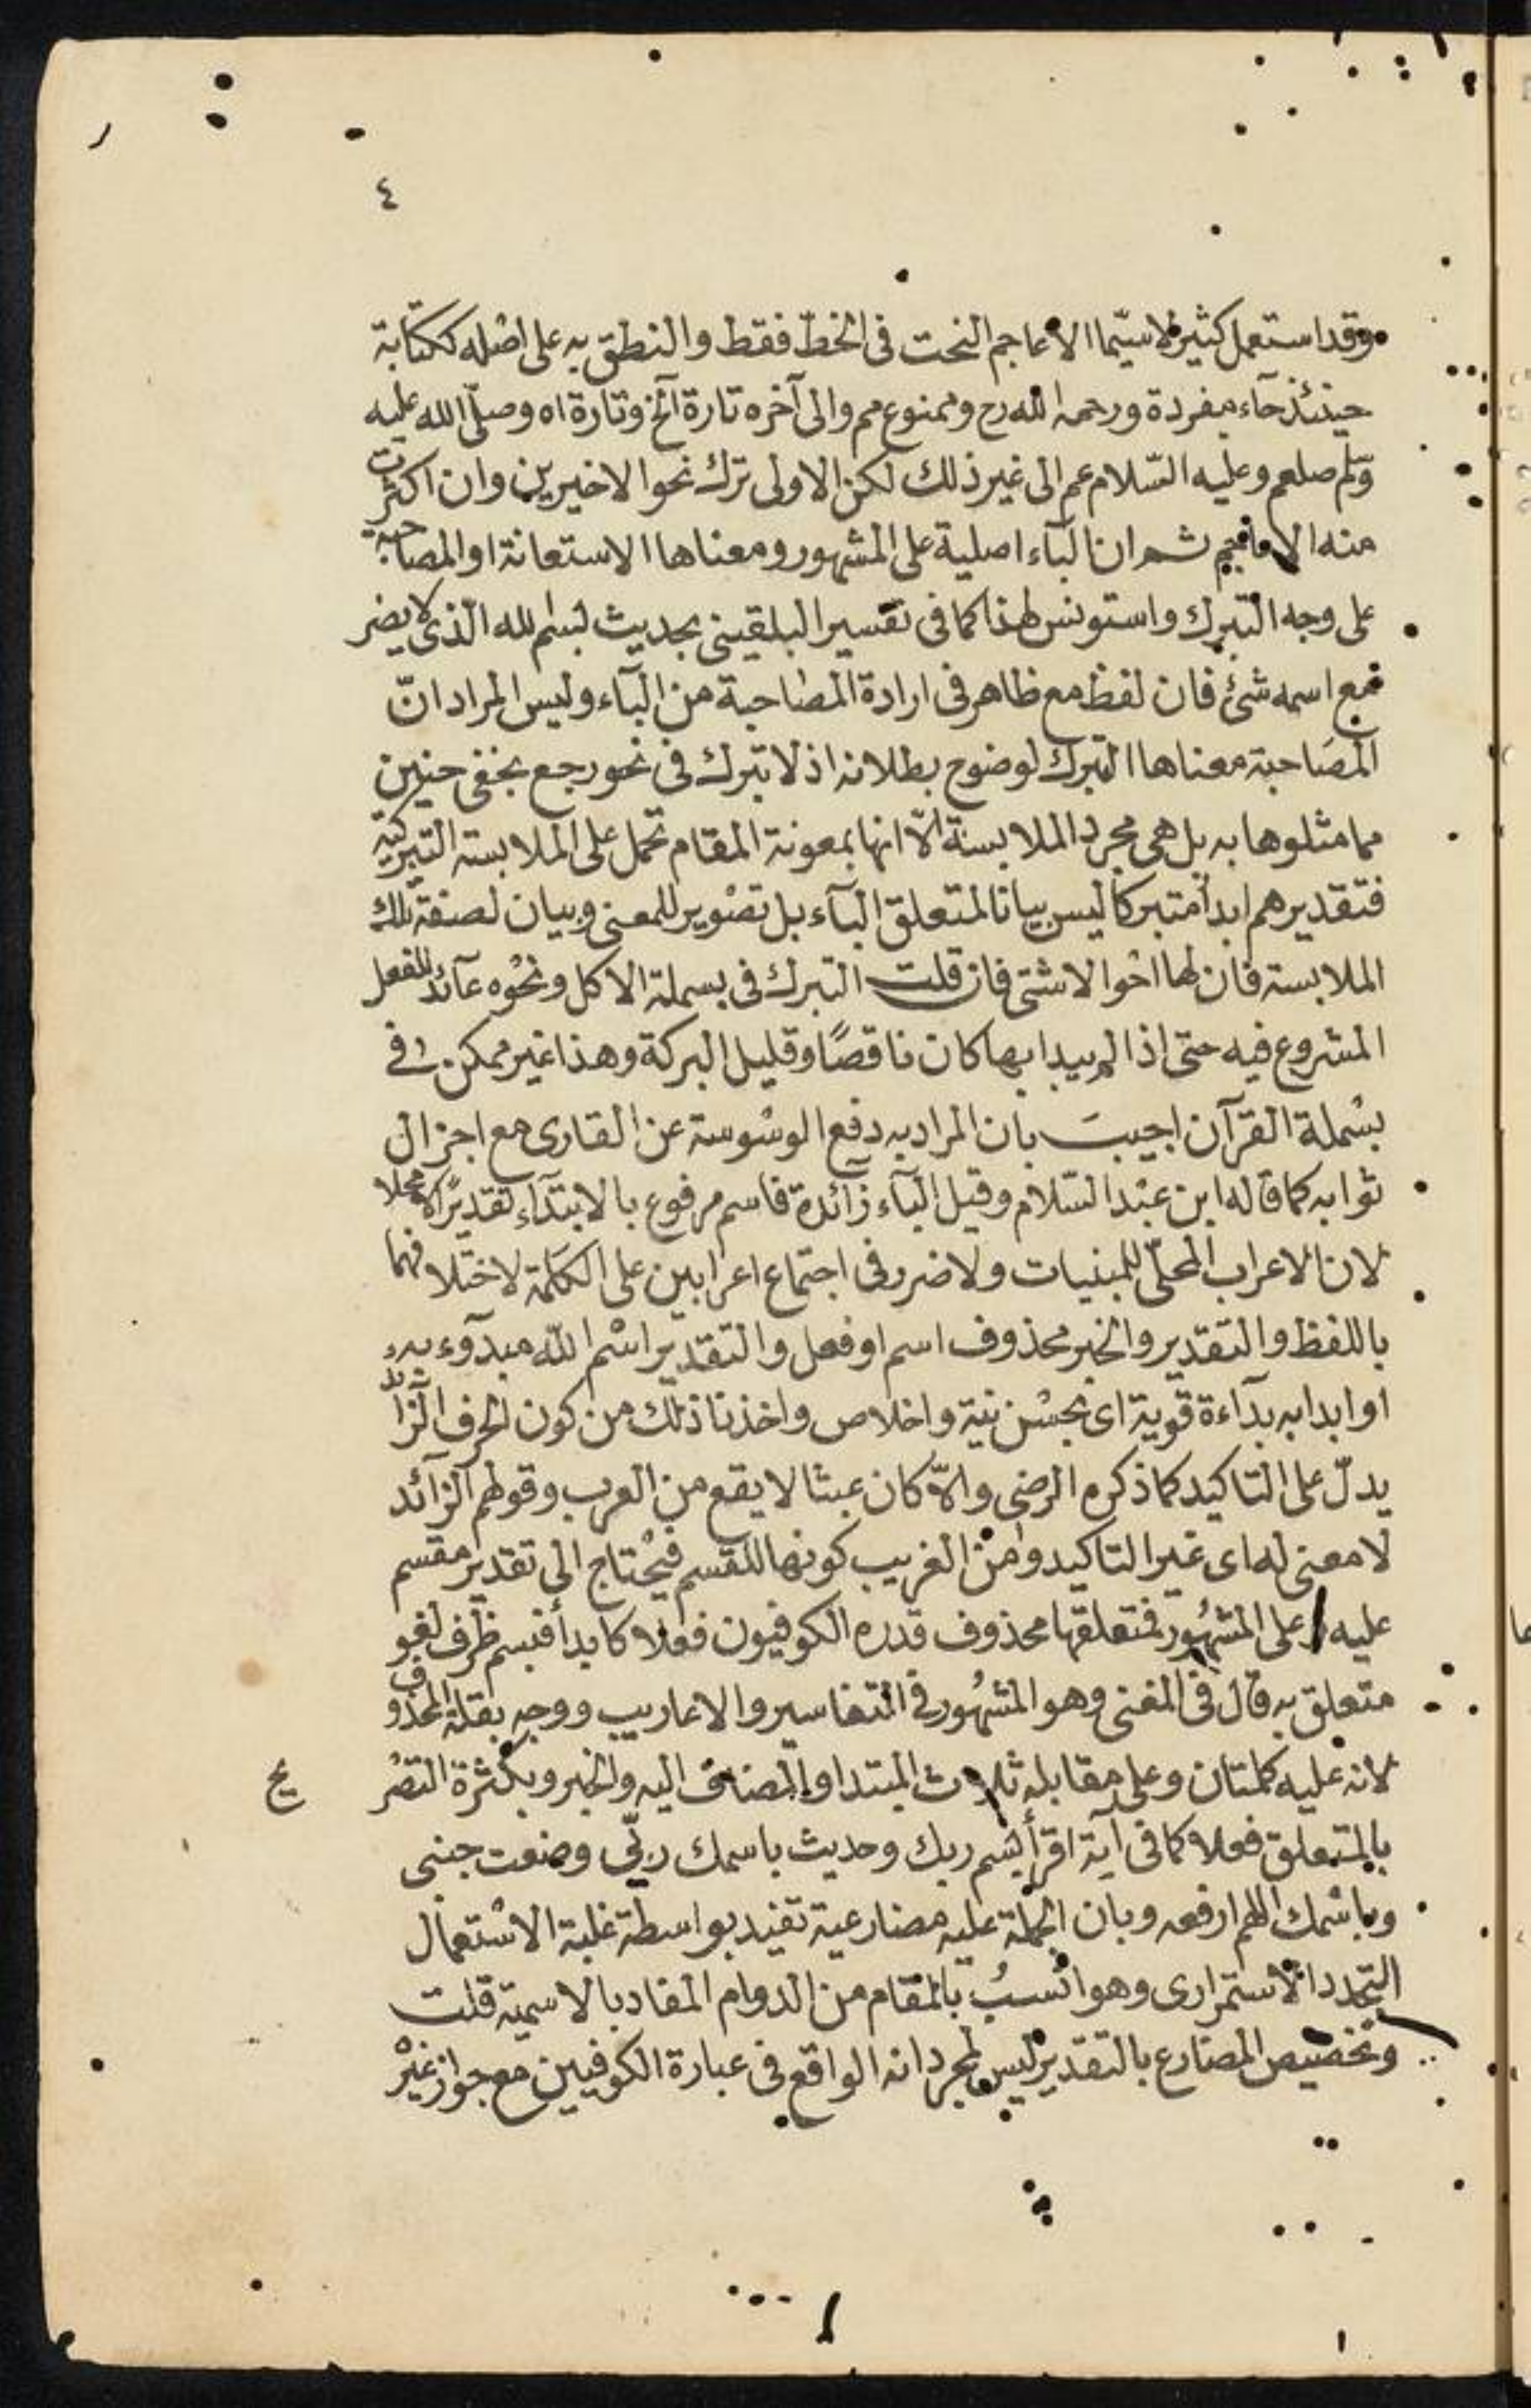 ٤
وقد استعمل كثير لا سيّما الاعاجم النحت فى الخطّ فقط والنطق به على اصْله ككتابة
حينئذ حآء مفردة ورحمه الله رح وممنوع مم والى آخره تارة آلخ وتارة اه وصلّى الله عليه
وسّلم صلعم وعليه السّلام عم الى غير ذلك لكن الاولى ترك نحو الاخيرين وان اكثرت
منه الاعاجم ثم ان البآء اصلية على المشهور ومعناها الاستعانة او المصاحبة
على وجه التبرك واستونس لهذا كما فى تفسير البلقينى بحديث بسْم لله الّذى لا يضر
مع اسمه شئ فان لفظ مع ظاهر فى ارادة المصاحبة من البآء وليس المراد انّ
المصَاحبة معناها التبرك لوضوح بطلانه اذ لا تبرك فى نحو رجع بخفى حنين
مما مثلوها به بل هى مجرد الملابسة الّا انها بمعونة المقام تحمل على الملابسة التبركية
فتقديرهم ابدأ متبركا ليس بيانا لمتعلق البآء بل تصْوير للمعنى وبيان لصفة تلك
الملابسة فان لها احْوالا شتى فان قلت التبرك فى بسملة الاكل ونحْوه عآئد للفعل
المشروع فيه حتى اذا لم يبدا بها كان ناقصًا وقليل البركة وهذا غير ممكن فى
بسْملة القرآن اجيبَ بان المراد به دفع الوسْوسة عن القارى مع اجزال
ثوابه كما قاله ابن عبْد السّلام وقيل البآء زآئدة فاسم مرفوع بالابتدآء تقديرًا لا محلا
لان الاعراب المحلّى للمبنيات ولا ضرر فى اجتماع اعرابين على الكلمة لاختلافهما
باللفظ والتقدير والخبر محذوف اسم او فعل والتقدير اسْم الله مبدوء به
او ابدا به بدآءة قوية اى بحسْن نية واخلاص واخذنا ذلك من كون الحرف الزائد
يدلّ على التاكيد كما ذكره الرضى والّا كان عبثا لا يقع من العرب وقولهم الزآئد
لا معنى له اى غير التاكيد ومن الغريب كونها للقسم فيحْتاج الى تقدير مقسم
عليه وعلى المشهُور فمتعلقها محذوف قدره الكوفيون فعلا كابدأ فبسم ظرف لغو
متعلق به قال فى المغنى وهو المشهُور فى التفاسير والاعاريب ووجه بقلة المحذوف
لانه عليه كلمتان وعلى مقابله ثلاث المبتدا والمضاف اليه والخبر وبكثرة التصْر
يح
بالمتعلق فعلا كما فى آية اقرأ باسم ربك وحديث باسمك ربّى وضعت جنبى
وباسْمك اللهم ارفعه وبان الجملة عليه مضارعية تفيد بواسطة غلبة الاسْتعمال
التجدد الاستمرارى وهو انْسبُ بالمقام من الدوام المفاد بالاسمية قلت
وتخصيص المضارع بالتقدير ليس لمجرد انه الواقع فى عبارة الكوفيين مع جواز غيْر